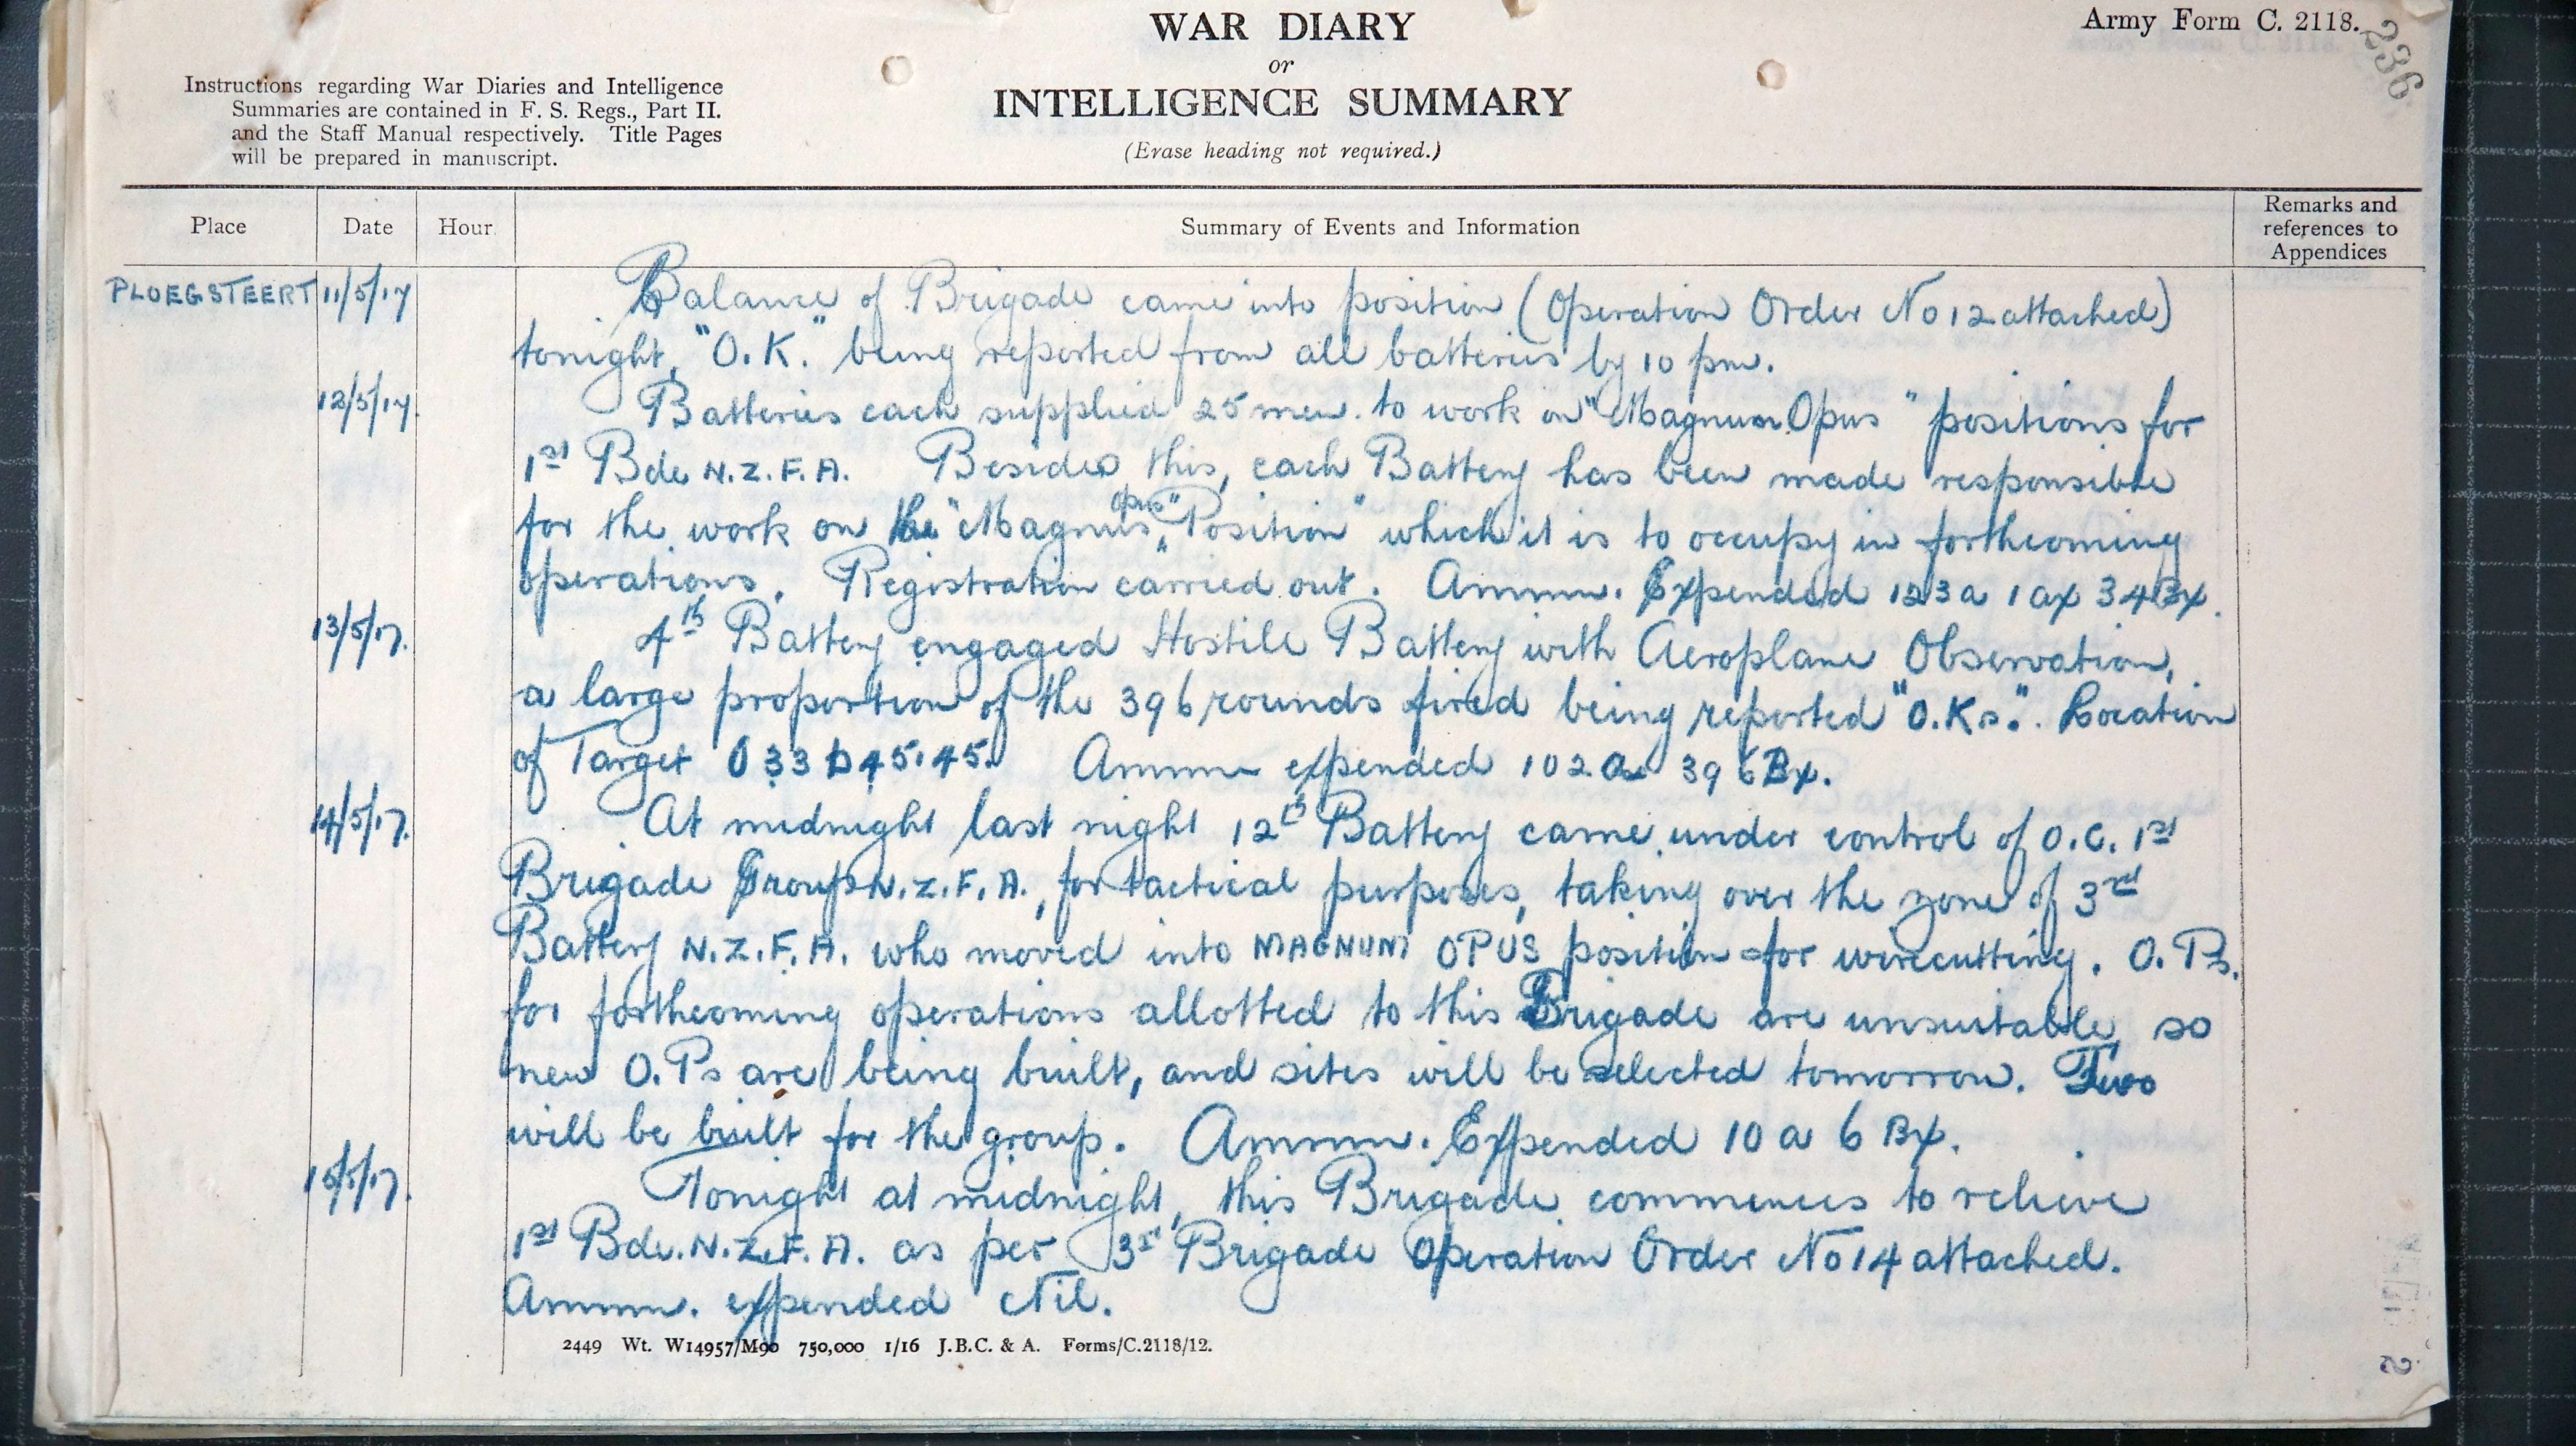 WAR DIARY
or
INTELLIGENCE SUMMARY
(Erase heading not required.)
Army Form C. 2118.
236
Instructions regarding War Diaries and Intelligence
Summaries are contained in F. S. Regs., Part II.
and the Staff Manual respectively. Title Pages
will be prepared in manuscript.
Place Date Hour Summary of Events and Information Remarks and references to Appendices
PLOEGSTEERT 11/5/17 Balance of Brigade came into position (Operation Order No 12 attached)
tonight, "O.K." being reported from all batteries by 10 pm.
12/5/17 Batteries each supplied 25 men to work on "Magnum Opus" positions for
1st Bde N.Z.F.A. Besides this, each Battery has been made responsible
for the work on the "Magnus opus" Position" which it is to occupy in forthcoming
operations. Registration carried out. Ammn. Expended 123 a 1 ax 34 Bx.
13/5/17. 4th Battery engaged Hostile Battery with Aeroplane Observation,
a large proportion of the 396 rounds fired being reported "O.Ks.". Location
of Target O 33 D 45.45. Ammn expended 102 a 396 Bx.
14/5/17. At midnight last night 12th Battery came under control of O.C. 1st
Brigade Group N.Z.F.A., for tactical purposes, taking over the zone of 3rd
Battery N.Z.F.A. who moved into MAGNUM OPUS position for wirecutting. O.Ps.
for forthcoming operations allotted to this Brigade are unsuitable, so
new O.Ps are being built, and sites will be selected tomorrow. Two
will be built for the group. Ammn. Expended 10 a 6 Bx.
15/5/17. Tonight at midnight, this Brigade commences to relieve
1st Bde. N.Z.F.A. as per 3rd Brigade Operation Order No 14 attached.
Ammn. expended Nil.
2449 Wt. W14957/M90 750,000 1/16 J.B.C. & A. Forms/C.2118/12.